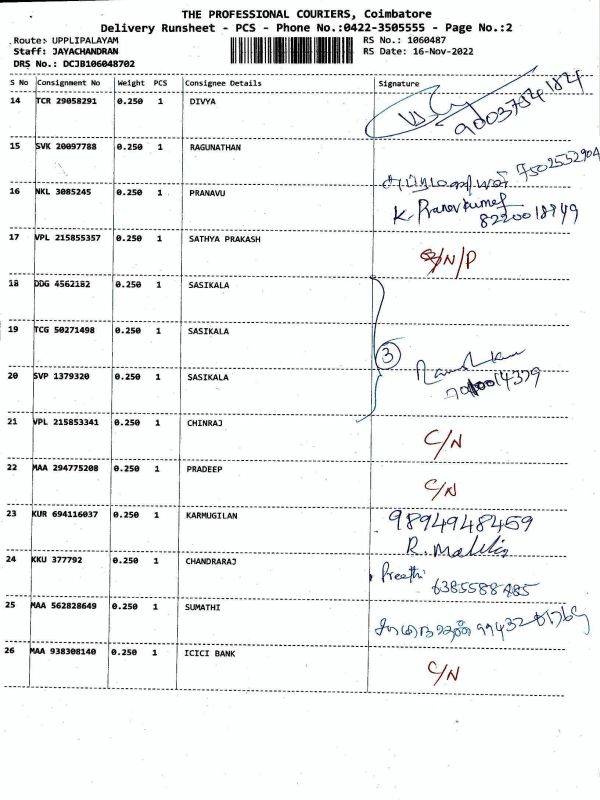 THE PROFESSIONAL COURIERS, Coimbatore
Delivery Runsheet - PCS - Phone No.:0422-3505555 - Page No.:2
Route: UPPLIPALAYAM RS No.: 1060487
Staff: JAYACHANDRAN RS Date: 16-Nov-2022
DRS No.: DCJB106048702
S No Consignment No Weight PCS Consignee Details Signature
14 TCR 29058291 0.250 1 DIVYA
9003754184
15 SVK 20097788 0.250 1 RAGUNATHAN
7502532904
16 NKL 3085245 0.250 1 PRANAVU K. Pranavkumar
8220018949
17 VPL 215855357 0.250 1 SATHYA PRAKASH S/N/P
18 DDG 4562182 0.250 1 SASIKALA
19 TCG 50271498 0.250 1 SASIKALA 3
20 SVP 1379320 0.250 1 SASIKALA
21 VPL 215853341 0.250 1 CHINRAJ C/N
22 MAA 294775208 0.250 1 PRADEEP C/N
23 KUR 694116037 0.250 1 KARMUGILAN 9894948459
24 KKU 377792 0.250 1 CHANDRARAJ Preethi
6385588485
25 MAA 562828649 0.250 1 SUMATHI
26 MAA 938308140 0.250 1 ICICI BANK C/N